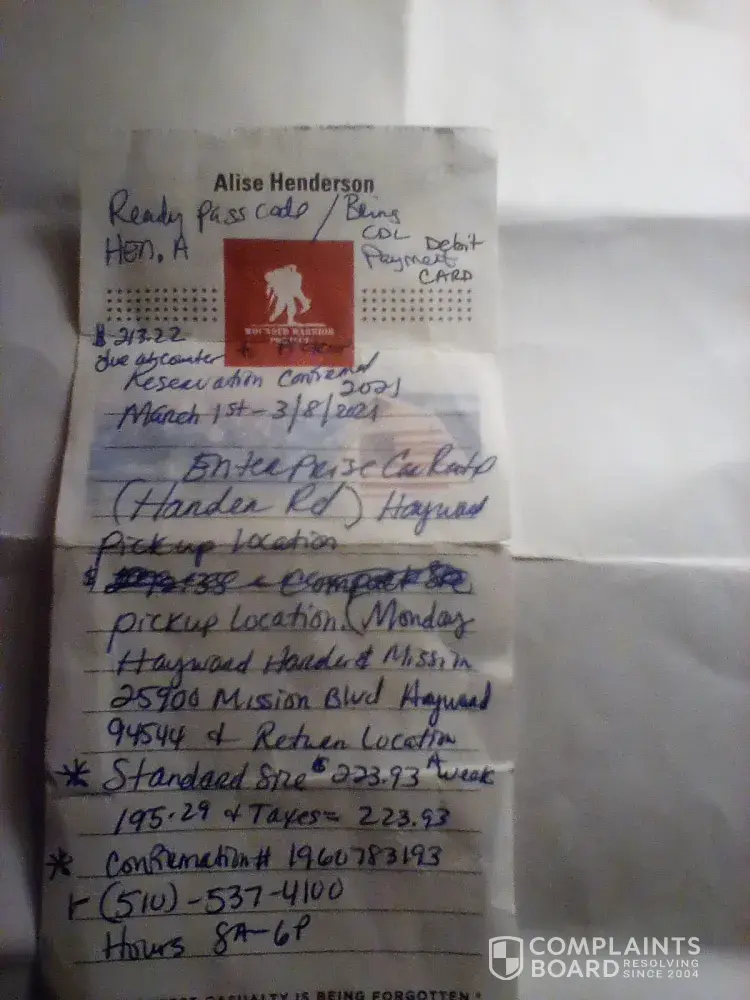 Alise Henderson
Ready Pass Code / Being
CDL
HEN. A
Debit
Payment
CARD
WOUNDED WARRIOR
PROJECT
$213.22
due at counter
Reservation Confirmed
2021
March 1st - 3/8/2021
Enterprise Car Rental
(Harder Rd) Hayward
Pickup Location
pickup Location (Monday
Hayward Harder & Mission
25900 Mission Blvd Hayward
94544 & Return Location
* Standard Size $223.93 A week
195.29 + Taxes = 223.93
* Confirmation# 1960783193
(510)-537-4100
Hours 8A-6P
CASUALTY IS BEING FORGOTTEN."
COMPLAINTS
BOARD RESOLVING
SINCE 2004